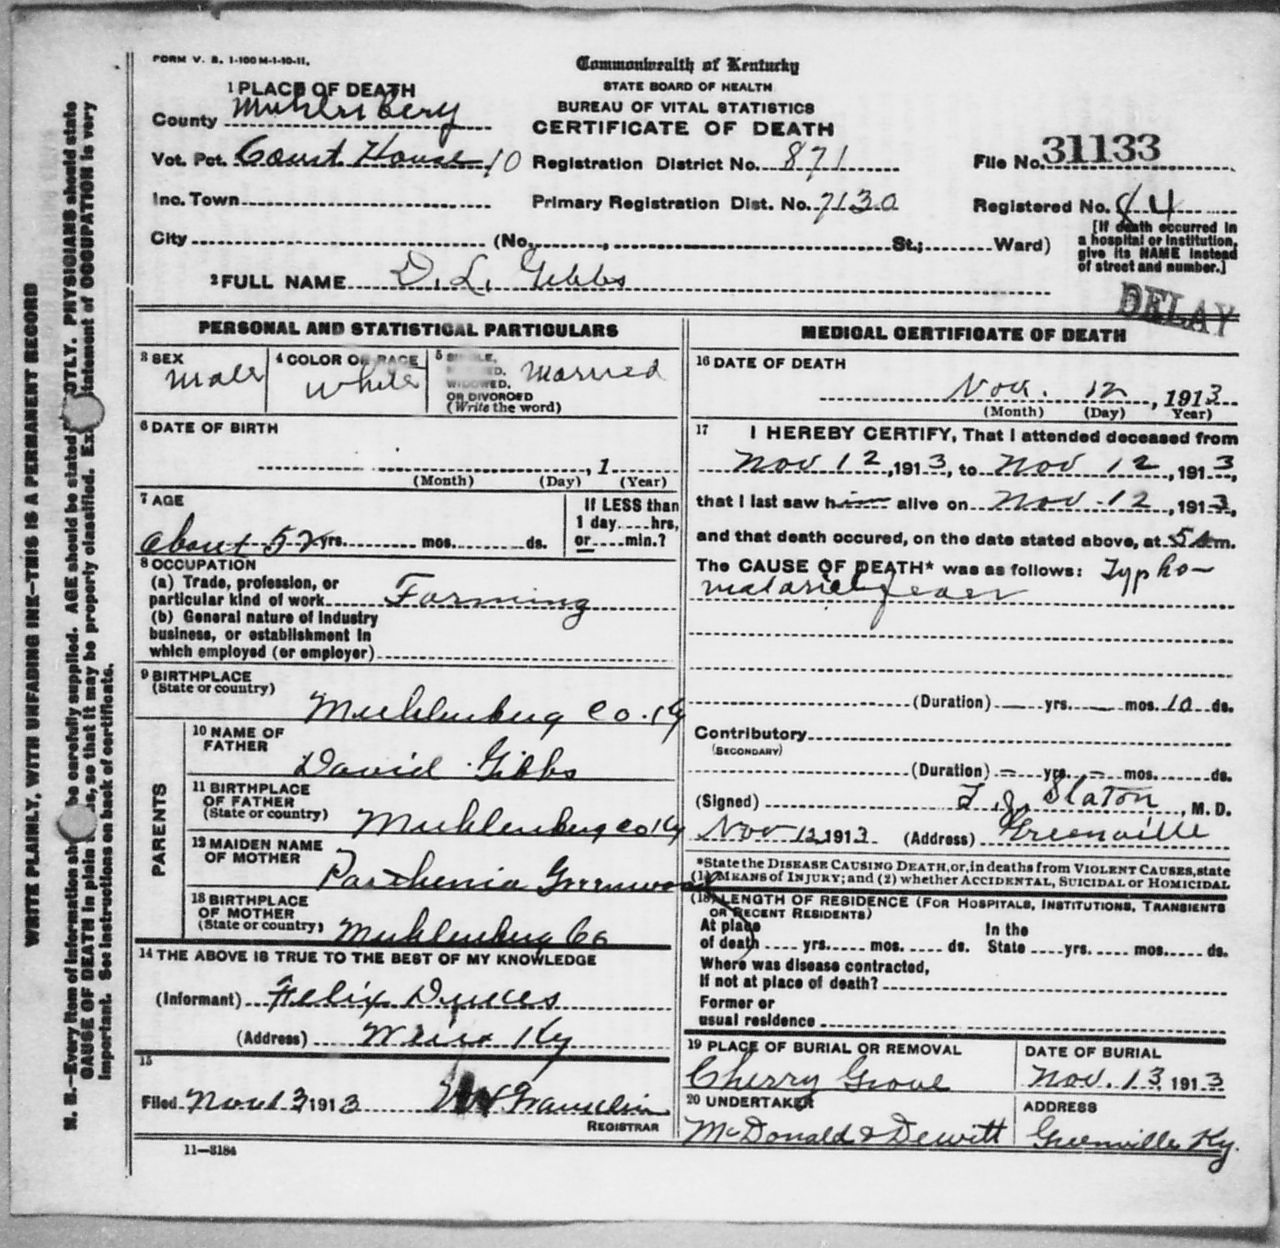 FORM V. S. 1-100 M-1-10-11.
Commonwealth of Kentucky
STATE BOARD OF HEALTH
BUREAU OF VITAL STATISTICS
CERTIFICATE OF DEATH
1 PLACE OF DEATH
County Muhlenberg
Vot. Pct. Court House 10 Registration District No. 871 File No. 31133
Inc. Town Primary Registration Dist. No. 7130 Registered No. 84
City (No. , St.; Ward)
[If death occurred in
a hospital or institution,
give its NAME instead
of street and number.]
2 FULL NAME D. L. Gibbs
DELAY
PERSONAL AND STATISTICAL PARTICULARS
3 SEX Male
4 COLOR OR RACE White
5 SINGLE, MARRIED, WIDOWED, OR DIVORCED (Write the word) Married
6 DATE OF BIRTH
, 1
(Month) (Day) (Year)
7 AGE
about 52 yrs. mos. ds.
If LESS than
1 day .... hrs,
or .... min.?
8 OCCUPATION
(a) Trade, profession, or
particular kind of work Farming
(b) General nature of industry
business, or establishment in
which employed (or employer)
9 BIRTHPLACE
(State or country) Muhlenberg Co. Ky
PARENTS
10 NAME OF
FATHER David Gibbs
11 BIRTHPLACE
OF FATHER
(State or country) Muhlenberg Co Ky
12 MAIDEN NAME
OF MOTHER Parthenia Greenwood
13 BIRTHPLACE
OF MOTHER
(State or country) Muhlenberg Co
14 THE ABOVE IS TRUE TO THE BEST OF MY KNOWLEDGE
(Informant) Felix Dukes
(Address) Ky
15
Filed Nov 13 1913
REGISTRAR
11—3184
MEDICAL CERTIFICATE OF DEATH
16 DATE OF DEATH
Nov. 12, 1913
(Month) (Day) (Year)
17 I HEREBY CERTIFY, That I attended deceased from
Nov 12, 1913, to Nov 12, 1913,
that I last saw him alive on Nov. 12, 1913,
and that death occured, on the date stated above, at 5 A m.
The CAUSE OF DEATH* was as follows: Typho-
malarial fever
(Duration) yrs. mos. 10 ds.
Contributory
(SECONDARY)
(Duration) yrs. mos. ds.
(Signed) T. J. Slaton, M. D.
Nov 12 1913 (Address) Greenville
*State the DISEASE CAUSING DEATH, or, in deaths from VIOLENT CAUSES, state
(1) MEANS OF INJURY; and (2) whether ACCIDENTAL, SUICIDAL or HOMICIDAL
(18) LENGTH OF RESIDENCE (FOR HOSPITALS, INSTITUTIONS, TRANSIENTS
OR RECENT RESIDENTS)
At place In the
of death .... yrs. .... mos. .... ds. State .... yrs. .... mos. .... ds.
Where was disease contracted,
If not at place of death?
Former or
usual residence
19 PLACE OF BURIAL OR REMOVAL
Cherry Grove
DATE OF BURIAL
Nov. 13 1913
20 UNDERTAKER
McDonald & Dewitt
ADDRESS
Greenville Ky.
WRITE PLAINLY, WITH UNFADING INK—THIS IS A PERMANENT RECORD
N. B.—Every item of information should be carefully supplied. AGE should be stated EXACTLY. PHYSICIANS should state
CAUSE OF DEATH in plain terms, so that it may be properly classified. Exact statement of OCCUPATION is very
important. See instructions on back of certificate.